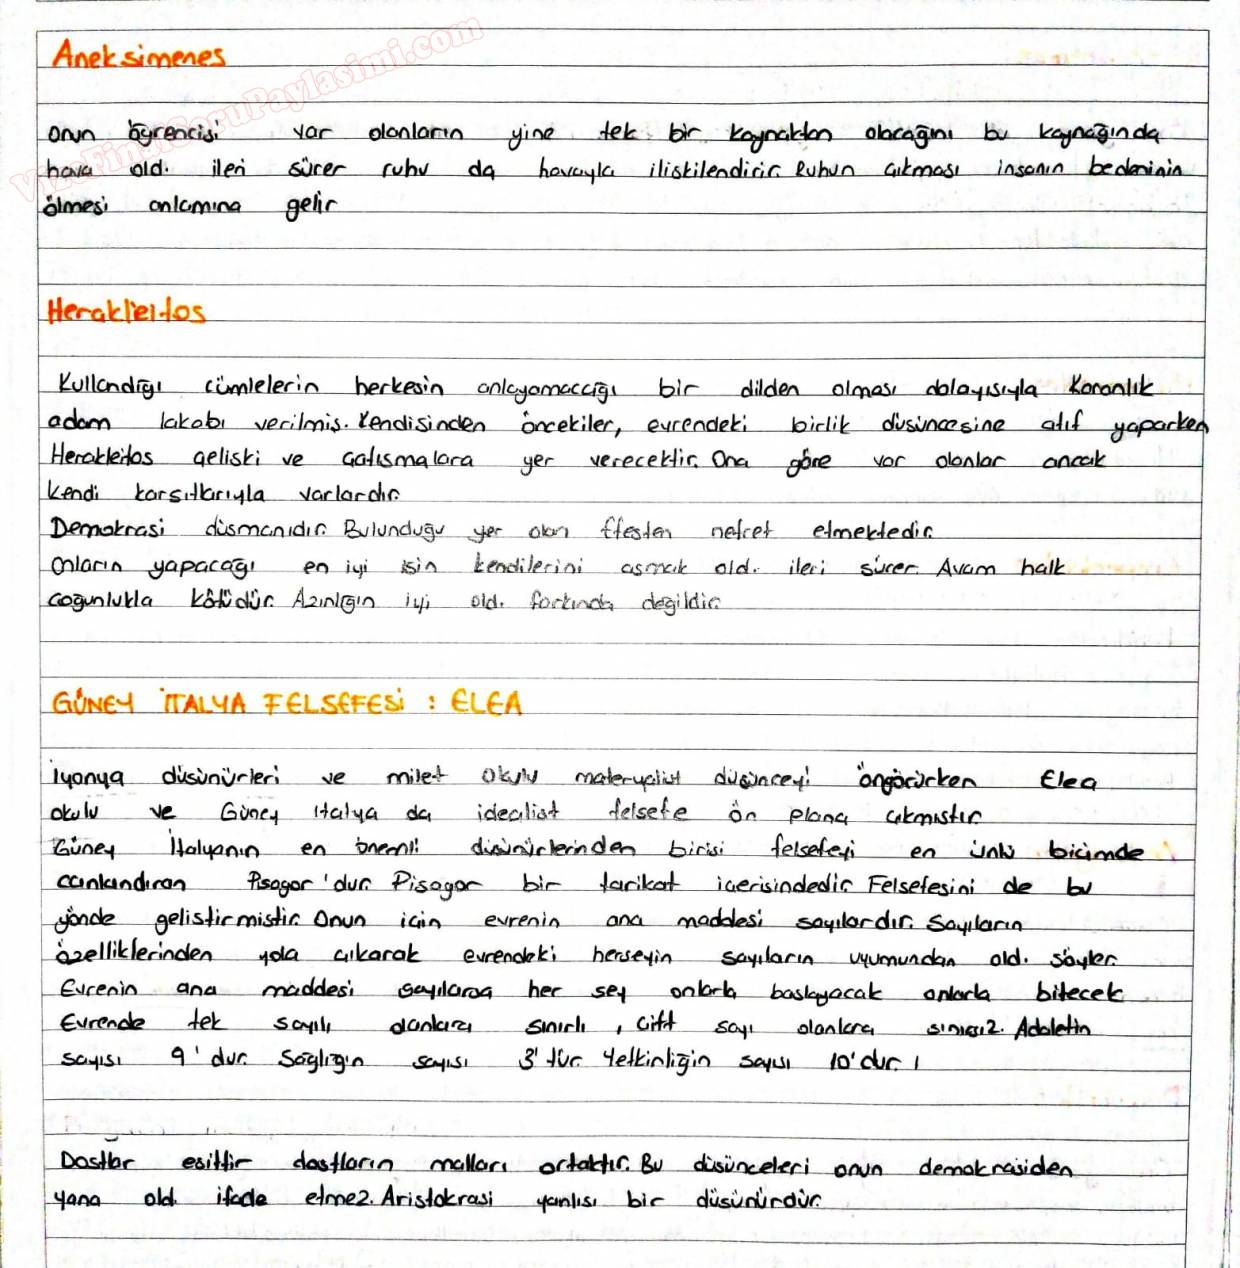 Aneksimenes
VizeFinalSoruPaylasimi.com
Onun öğrencisi var olanların yine tek bir kaynaktan olacağını bu kaynağında
hava old. ileri sürer ruhu da havayla iliskilendirir. Ruhun çıkması insanın bedeninin
ölmesi anlamına gelir
Herakleitos
Kullandığı cümlelerin herkesin anlayamacağı bir dilden olması dolayısıyla Karanlık
adam lakabı verilmis. Kendisinden öncekiler, evrendeki birlik düsüncesine atıf yaparken
Herakleitos çeliski ve çatısmalara yer verecektir. Ona göre var olanlar ancak
kendi karsıtlarıyla varlardır.
Demokrasi düsmanıdır. Bulunduğu yer olan Efesten nefret etmektedir.
Onların yapacağı en iyi isin kendilerini asmak old. ileri sürer. Avam halk
çoğunlukla kötüdür. Azınlığın iyi old. farkında değildir.
GÜNEY İTALYA FELSEFESİ : ELEA
İyonya düsünürleri ve milet okulu materyalist düsünceyi öngörürken Elea
okulu ve Güney İtalya da idealist felsefe ön plana çıkmıstır.
Güney İtalyanın en önemli düsünürlerinden birisi felsefeyi en ünlü biçimde
canlandıran Pisagor'dur. Pisagor bir tarikat içerisindedir. Felsefesini de bu
yönde gelistirmistir. Onun için evrenin ana maddesi sayılardır. Sayıların
özelliklerinden yola çıkarak evrendeki herseyin sayıların uyumundan old. söyler.
Evrenin ana maddesi sayılarsa her sey onlarla baslayacak onlarla bitecek.
Evrende tek sayılı olanlara sınırlı, çift sayı olanlara sınırsız. Adaletin
sayısı 9'dur. Sağlığın sayısı 3'tür. Yetkinliğin sayısı 10'dur. 1
Dostlar esittir dostların malları ortaktır. Bu düsünceleri onun demokrasiden
yana old. ifade etmez. Aristokrasi yanlısı bir düsünürdür.